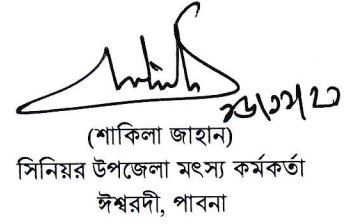 (শাকিলা জাহান)
সিনিয়র উপজেলা মৎস্য কর্মকর্তা
ঈশ্বরদী, পাবনা